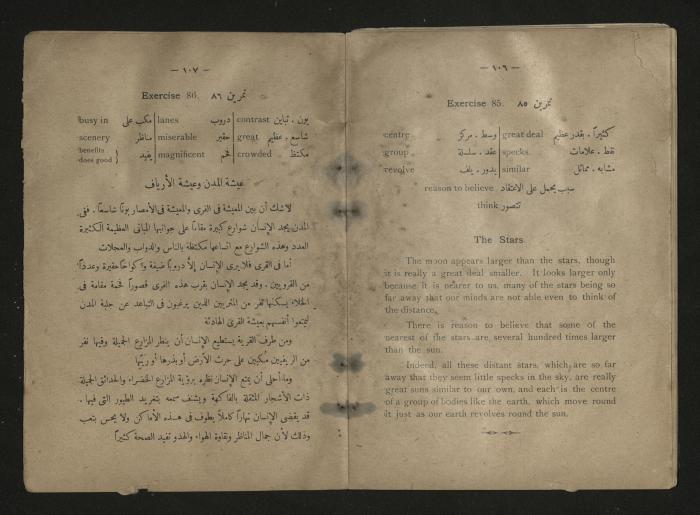 — ١٠٦ —
Exercise 85. تمرين ٨٥
centre وسط . مركز great deal كثيراً . بقدر عظيم
group عقد . سلسلة specks نقط . علامات
revolve يدور . يلف similar مشابه . مماثل
reason to believe سبب يحمل على الاعتقاد
think تتصور
The Stars
The moon appears larger than the stars, though
it is really a great deal smaller. It looks larger only
because it is nearer to us, many of the stars being so
far away that our minds are not able even to think of
the distance.
There is reason to believe that some of the
nearest of the stars are several hundred times larger
than the sun.
Indeed, all these distant stars, which are so far
away that they seem little specks in the sky, are really
great suns similar to our own, and each is the centre
of a group of bodies like the earth, which move round
it just as our earth revolves round the sun.
— ١٠٧ —
Exercise 86. تمرين ٨٦
busy in مكب على lanes دروب contrast بون . تباين
scenery مناظر miserable حقير great شاسع . عظيم
benefits does good } يفيد magnificent فخم crowded مكتظ
عيشة المدن وعيشة الأرياف
لاشك أن بين المعيشة فى القرى والمعيشة فى الأمصار بونًا شاسعًا . ففى
المدن يجد الإنسان شوارع كبيرة مقامًا على جوانبها المبانى العظيمة الكثيرة
العدد وهذه الشوارع مع اتساعها مكتظة بالناس والدواب والعجلات
أما فى القرى فلا يرى الإنسان إلاّ دروبًا ضيقة وأكواخًا حقيرة وعددًا
من القرويين . وقد يجد الإنسان بقرب هذه القرى قصورًا فخمة مقامة فى
الخلاء يسكنها نفر من المثريين الذين يرغبون فى التباعد عن جلبة المدن
ليمتعوا أنفسهم بعيشة القرى الهادئة
ومن طرف القرية يستطيع الإنسان أن ينظر المزارع الجميلة وفيها نفر
من الريفيين مكبين على حرث الأرض أو بذرها أو ريّها
وما أحلى أن يمتع الإنسان نظره برؤية المزارع الخضراء والحدائق الجميلة
ذات الأشجار المثقلة بالفاكهة ويشنف سمعه بتغريد الطيور التى فيها .
قد يقضى الإنسان نهارًا كاملاً يطوف فى هذه الأماكن ولا يحس بتعب
وذلك لأن جمال المناظر ونقاوة الهواء والهدو تفيد الصحة كثيرًا